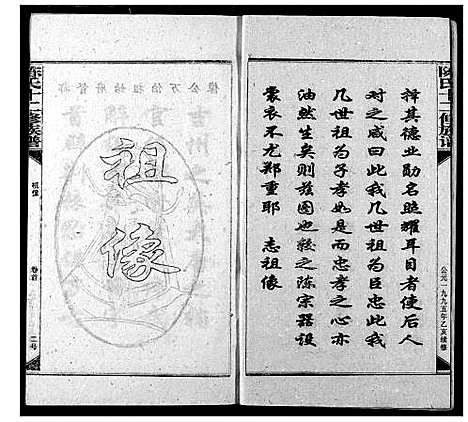 陈氏十二修族谱
公元一九九五年乙亥续修
择其德业勋名照耀耳目者使后人
对之咸曰此我几世祖为臣忠此我
几世祖为子孝如是而忠孝之心亦
油然生矣则兹图也较之陈宗器设
裳衣不尤郑重耶 志祖像
都督府始祖伯万公像
祖像
陈氏十二修族谱
祖像
卷首
二号